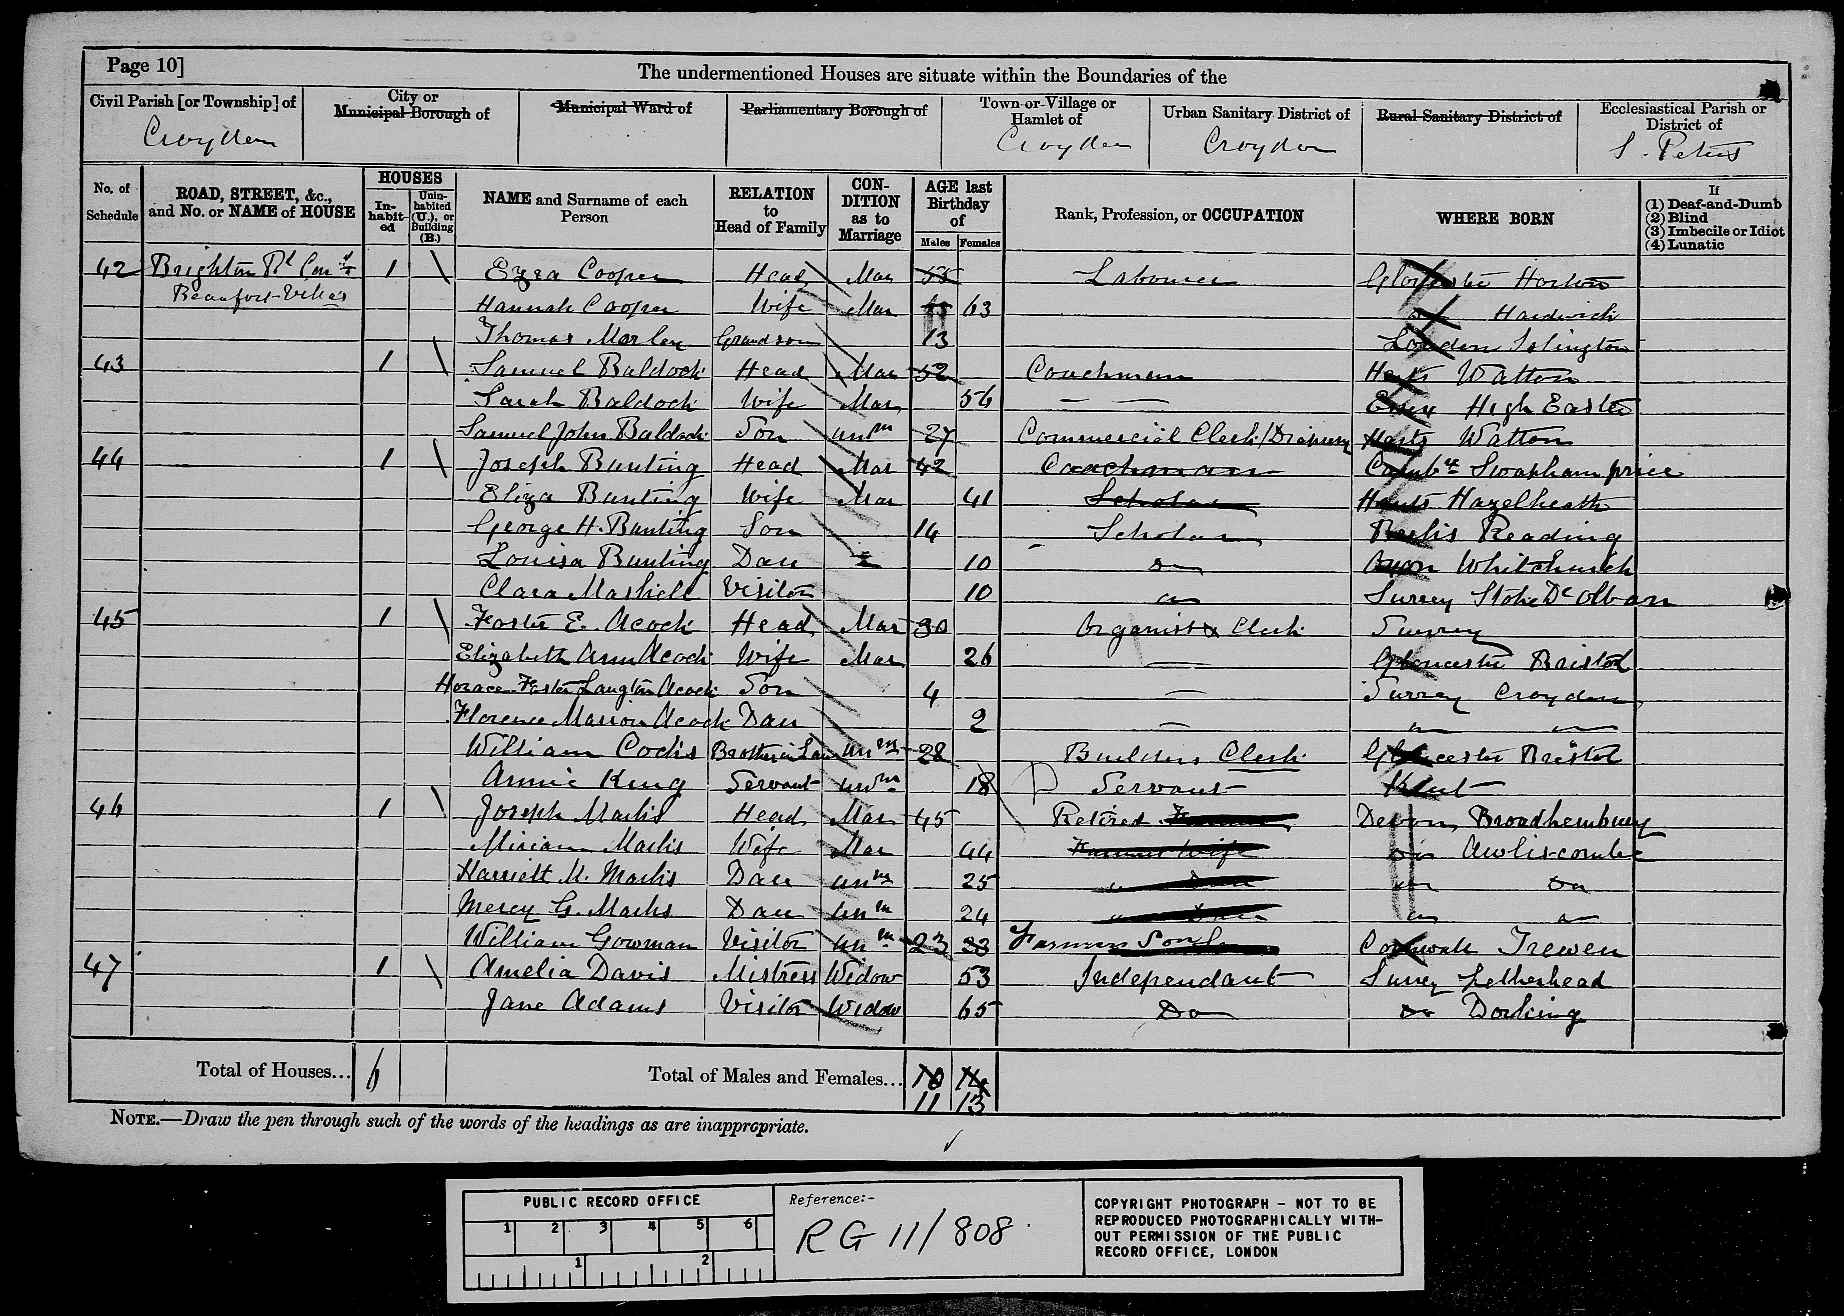 Page 10]
The undermentioned Houses are situate within the Boundaries of the
Civil Parish [or Township] of
City or Municipal Borough of
Municipal Ward of
Parliamentary Borough of
Town or Village or Hamlet of
Urban Sanitary District of
Rural Sanitary District of
Ecclesiastical Parish or District of
Croydon Croydon Croydon S. Peters
No. of Schedule
ROAD, STREET, &c., and No. or NAME of HOUSE
HOUSES
In-habit-ed
Unin-habited (U.), or Building (B.)
NAME and Surname of each Person
RELATION to Head of Family
CON-DITION as to Marriage
AGE last Birthday of
Males Females
Rank, Profession, or OCCUPATION
WHERE BORN
If
(1) Deaf-and-Dumb
(2) Blind
(3) Imbecile or Idiot
(4) Lunatic
42 Brighton Rd 1 Ezra Cooper Head Mar 55 Labourer Gloucester Horton
Beaufort Villas Hannah Cooper Wife Mar 63 Hardwich
Thomas Morley Grandson 13 London Islington
43 1 Samuel Baldock Head Mar 52 Coachman Herts Watton
Sarah Baldock Wife Mar 56 — — Essex High Easter
Samuel John Baldock Son unm 27 Commercial Clerk/Drapery Herts Watton
44 1 Joseph Bunting Head Mar 42 Coachman Cambs Swapham price
Eliza Bunting Wife Mar 41 Scholar Hants Hazelheath
George H. Bunting Son 14 Scholar Berks Reading
Louisa Bunting Dau 10 Do Oxon Whitchurch
Clara Maskell Visitor 10 Do Surrey Stoke D'Olban
45 1 Foster E. Acock Head Mar 30 Organist & Clerk Surrey
Elizabeth Ann Acock Wife Mar 26 — Gloucester Bristol
Horace Foster Langton Acock Son 4 — Surrey Croydon
Florence Marion Acock Dau 2 — Do Do
William Cocks Brother in Law unm 28 Builders Clerk Gloucester Bristol
Annie King Servant unm 18 Servant Kent
46 1 Joseph Marks Head Mar 45 Retired Farmer Devon Broadhembury
Miriam Marks Wife Mar 44 Farmers Wife Do Awliscombe
Harriett M. Marks Dau unm 25 Do Dau Do Do
Mercy G. Marks Dau unm 24 Do Dau Do Do
William Gowman Visitor unm 23 23 Farmers Son Cornwall Trewen
47 1 Amelia Davis Mistress Widow 53 Independant Surrey Letherhead
Jane Adams Visitor Widow 65 Do Do Dorking
Total of Houses... 6 Total of Males and Females... 10 14
11 13
NOTE.—Draw the pen through such of the words of the headings as are inappropriate.
PUBLIC RECORD OFFICE
1 2 3 4 5 6
1 2
Reference:-
RG 11/808
COPYRIGHT PHOTOGRAPH - NOT TO BE
REPRODUCED PHOTOGRAPHICALLY WITH-
OUT PERMISSION OF THE PUBLIC
RECORD OFFICE, LONDON